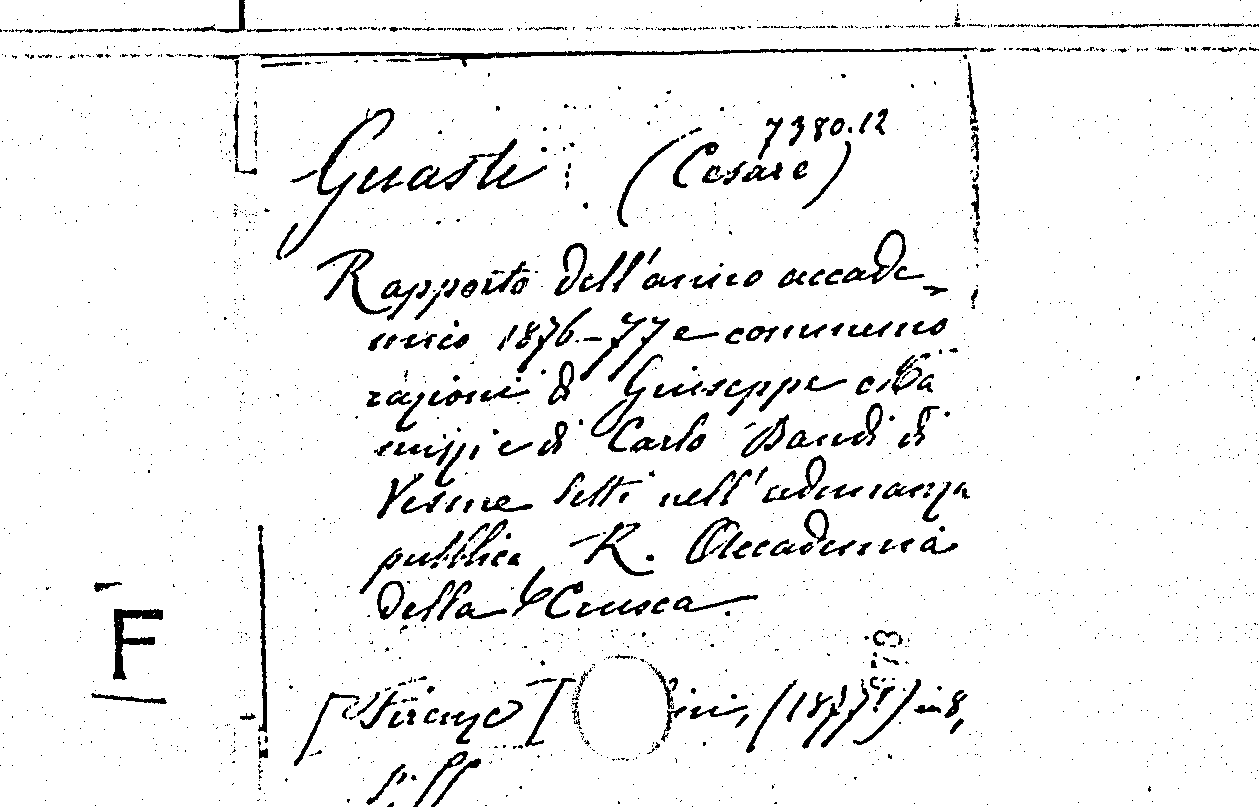 7380.12
Guasti (Cesare)
Rapporto dell'anno accade-
mico 1876-77 e commemo
razioni di Giuseppe
e di Carlo Baudi di
Vesme letti nell'adunanza
pubblica R. Accademia
della Crusca.
F
73
[Firenze] ini, (1877) in 8,